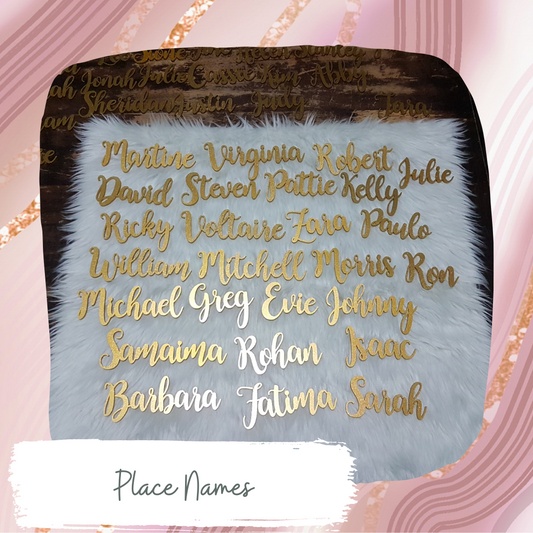 Jonah Julio Cassa Kim Abby
Sheridan Justin Judy Zara
Martine Virginia Robert
Julie
David Steven Pattie Kelly
Ricky Voltaire Zara Paulo
William Mitchell Morris Ron
Michael Greg Evie Johnny
Samaima Rohan Isaac
Barbara Fatima Sarah
Place Names